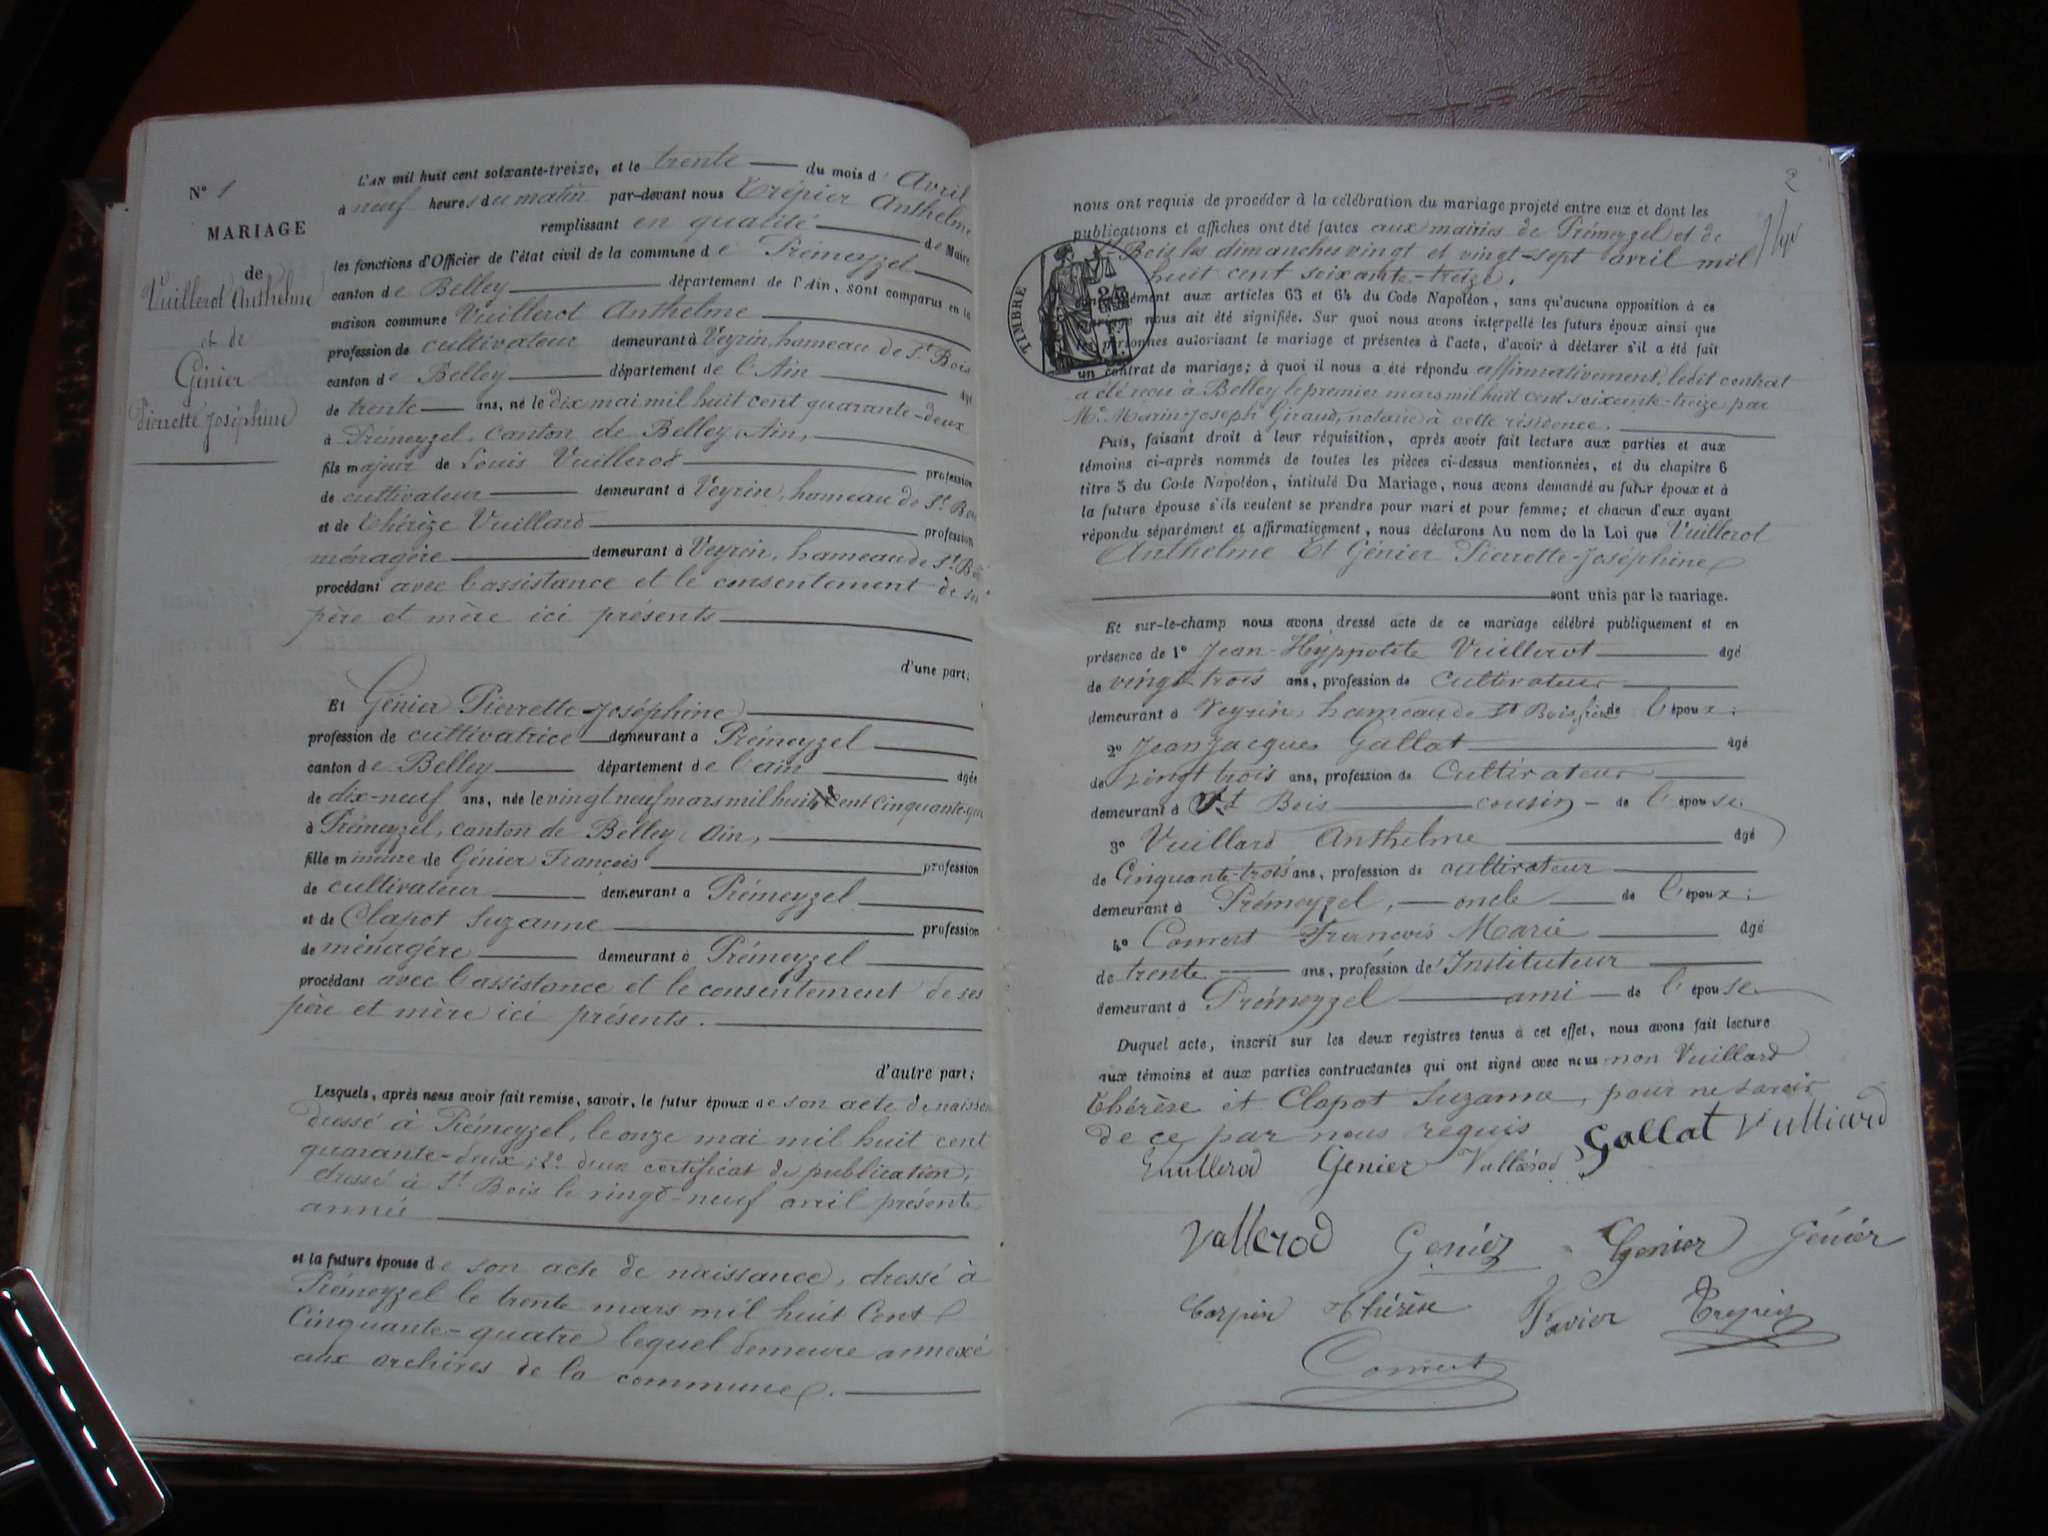 N° 1
MARIAGE
de
Vuillerot Anthelme
et de
Génier
Pierrette Joséphine
L'AN mil huit cent soixante-treize, et le trente du mois d'Avril
à neuf heures du matin par-devant nous Trépier Anthelme
remplissant en qualité de Maire
les fonctions d'Officier de l'état civil de la commune de Prémeyzel
canton de Belley département de l'Ain, sont comparus en la
maison commune Vuillerot Anthelme
profession de cultivateur demeurant à Veyrin, hameau de St Bois
canton de Belley département de l'Ain âgé
de trente ans, né le dix mai mil huit cent quarante-deux
à Prémeyzel, canton de Belley, Ain,
fils majeur de Louis Vuillerod profession
de cultivateur demeurant à Veyrin, hameau de St Bois
et de Thérèze Vuillard profession
ménagère demeurant à Veyrin, hameau de St Bois
procédant avec l'assistance et le consentement de ses
père et mère ici présents
d'une part;
Et Génier Pierrette-Joséphine
profession de cultivatrice demeurant à Prémeyzel
canton de Belley département de l'ain âgée
de dix-neuf ans, née le vingt neuf mars mil huit cent cinquante-qu
à Prémeyzel, canton de Belley, Ain,
fille mineure de Génier François profession
de cultivateur demeurant à Prémeyzel
et de Clapot Suzanne profession
de ménagère demeurant à Prémeyzel
procédant avec l'assistance et le consentement de ses
père et mère ici présents.
d'autre part;
Lesquels, après nous avoir fait remise, savoir, le futur époux de son acte de naissan
dressé à Prémeyzel, le onze mai mil huit cent
quarante-deux; 2° deux certificat de publication,
dressé à St Bois le vingt-neuf avril présente
année
et la future épouse de son acte de naissance, dressé à
Prémeyzel le trente mars mil huit Cent
Cinquante-quatre lequel demeure annexé
aux archives de la commune.
2
nous ont requis de procéder à la célébration du mariage projeté entre eux et dont les
publications et affiches ont été faites aux mairies de Prémeyzel et de
Bois les dimanches vingt et vingt-sept avril mil
huit cent soixante-treize.
TIMBRE
ément aux articles 63 et 64 du Code Napoléon, sans qu'aucune opposition à ce
nous ait été signifiée. Sur quoi nous avons interpellé les futurs époux ainsi que
personnes autorisant le mariage et présentes à l'acte, d'avoir à déclarer s'il a été fait
un contrat de mariage; à quoi il nous a été répondu affirmativement, ledit contrat
a été reçu à Belley le premier mars mil huit cent soixante-treize par
Me Marin-Joseph Giraud, notaire à cette résidence.
Puis, faisant droit à leur réquisition, après avoir fait lecture aux parties et aux
témoins ci-après nommés de toutes les pièces ci-dessus mentionnées, et du chapitre 6
titre 5 du Code Napoléon, intitulé Du Mariage, nous avons demandé au futur époux et à
la future épouse s'ils veulent se prendre pour mari et pour femme; et chacun d'eux ayant
répondu séparément et affirmativement, nous déclarons Au nom de la Loi que Vuillerot
Anthelme Et Génier Pierrette-Joséphine
sont unis par le mariage.
Et sur-le-champ nous avons dressé acte de ce mariage célébré publiquement et en
présence de 1° Jean-Hyppolite Vuillerot âgé
de vingt-trois ans, profession de cultivateur
demeurant à Veyrin, hameau de St Bois, frère de l'époux;
2° Jean Jacques Gallat âgé
de vingt trois ans, profession de Cultivateur
demeurant à St Bois cousin de l'épouse
3° Vuillard Anthelme âgé
de Cinquante-trois ans, profession de cultivateur
demeurant à Prémeyzel, oncle de l'époux;
4° Comert François Marie âgé
de trente ans, profession d'Instituteur
demeurant à Prémeyzel ami de l'épouse
Duquel acte, inscrit sur les deux registres tenus à cet effet, nous avons fait lecture
aux témoins et aux parties contractantes qui ont signé avec nous non Vuillard
Thérèse et Clapot Suzanne, pour ne savoir
de ce par nous requis
Gallat Vulliard
Vuillerod Genier Vullerod
Vallerod Geniez Genier Génier
Carpin Thérèse Favier Trepier
Comert